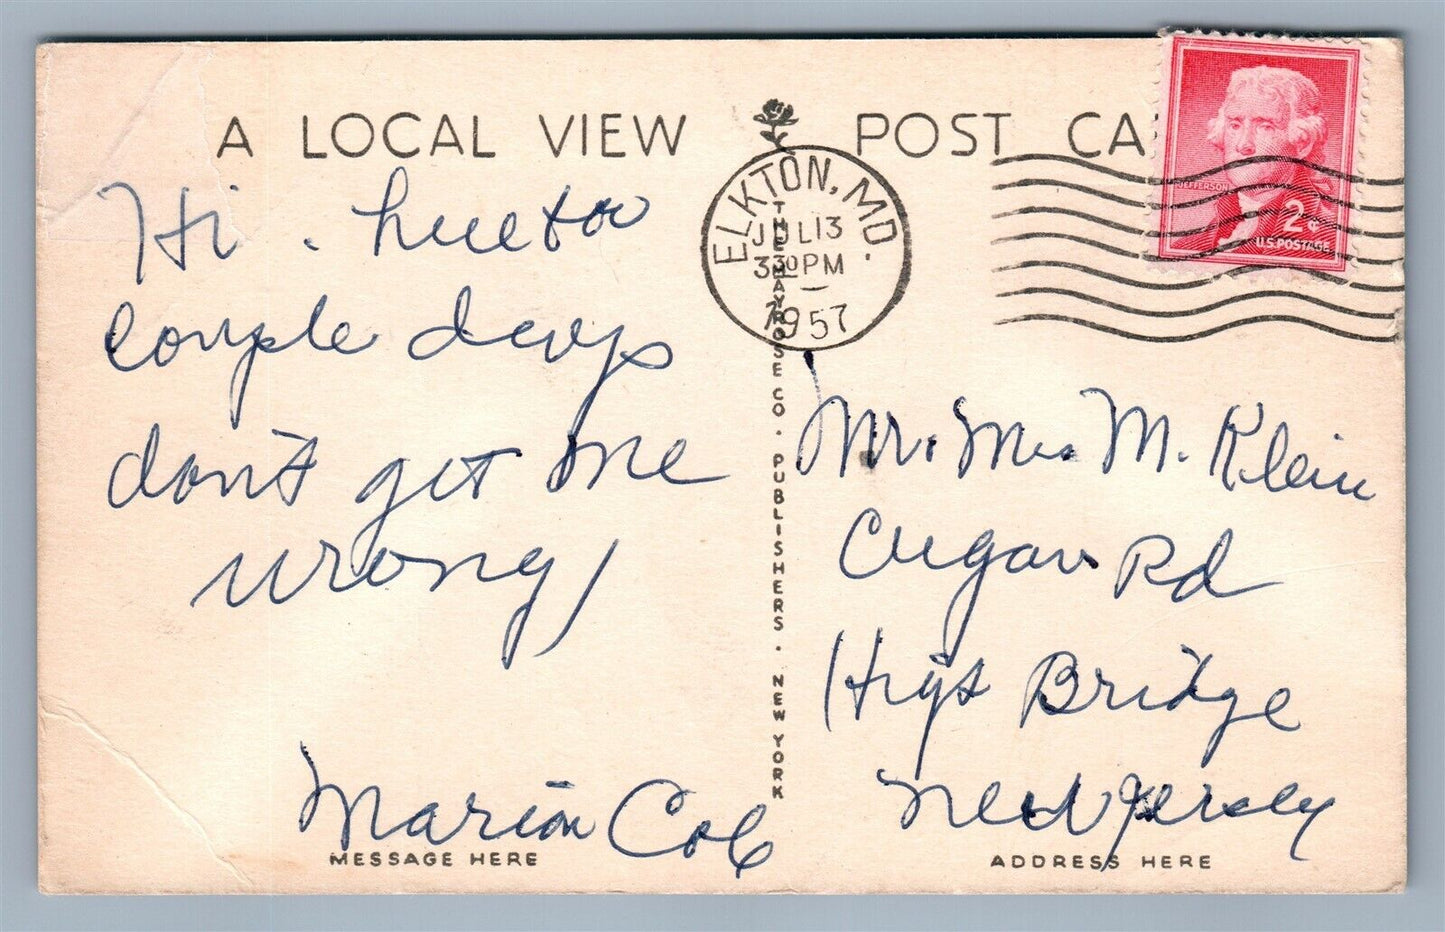 A LOCAL VIEW
POST CA
JEFFERSON
2¢
U.S. POSTAGE
ELKTON, MD.
JUL 13
3 30 PM
1957
THE MAYROSE CO. · PUBLISHERS · NEW YORK
Hi. here for
couple days
don't get me
wrong
Marion Cob
MESSAGE HERE
Mr. Mrs M. Klein
Rd
High Bridge
New Jersey
ADDRESS HERE